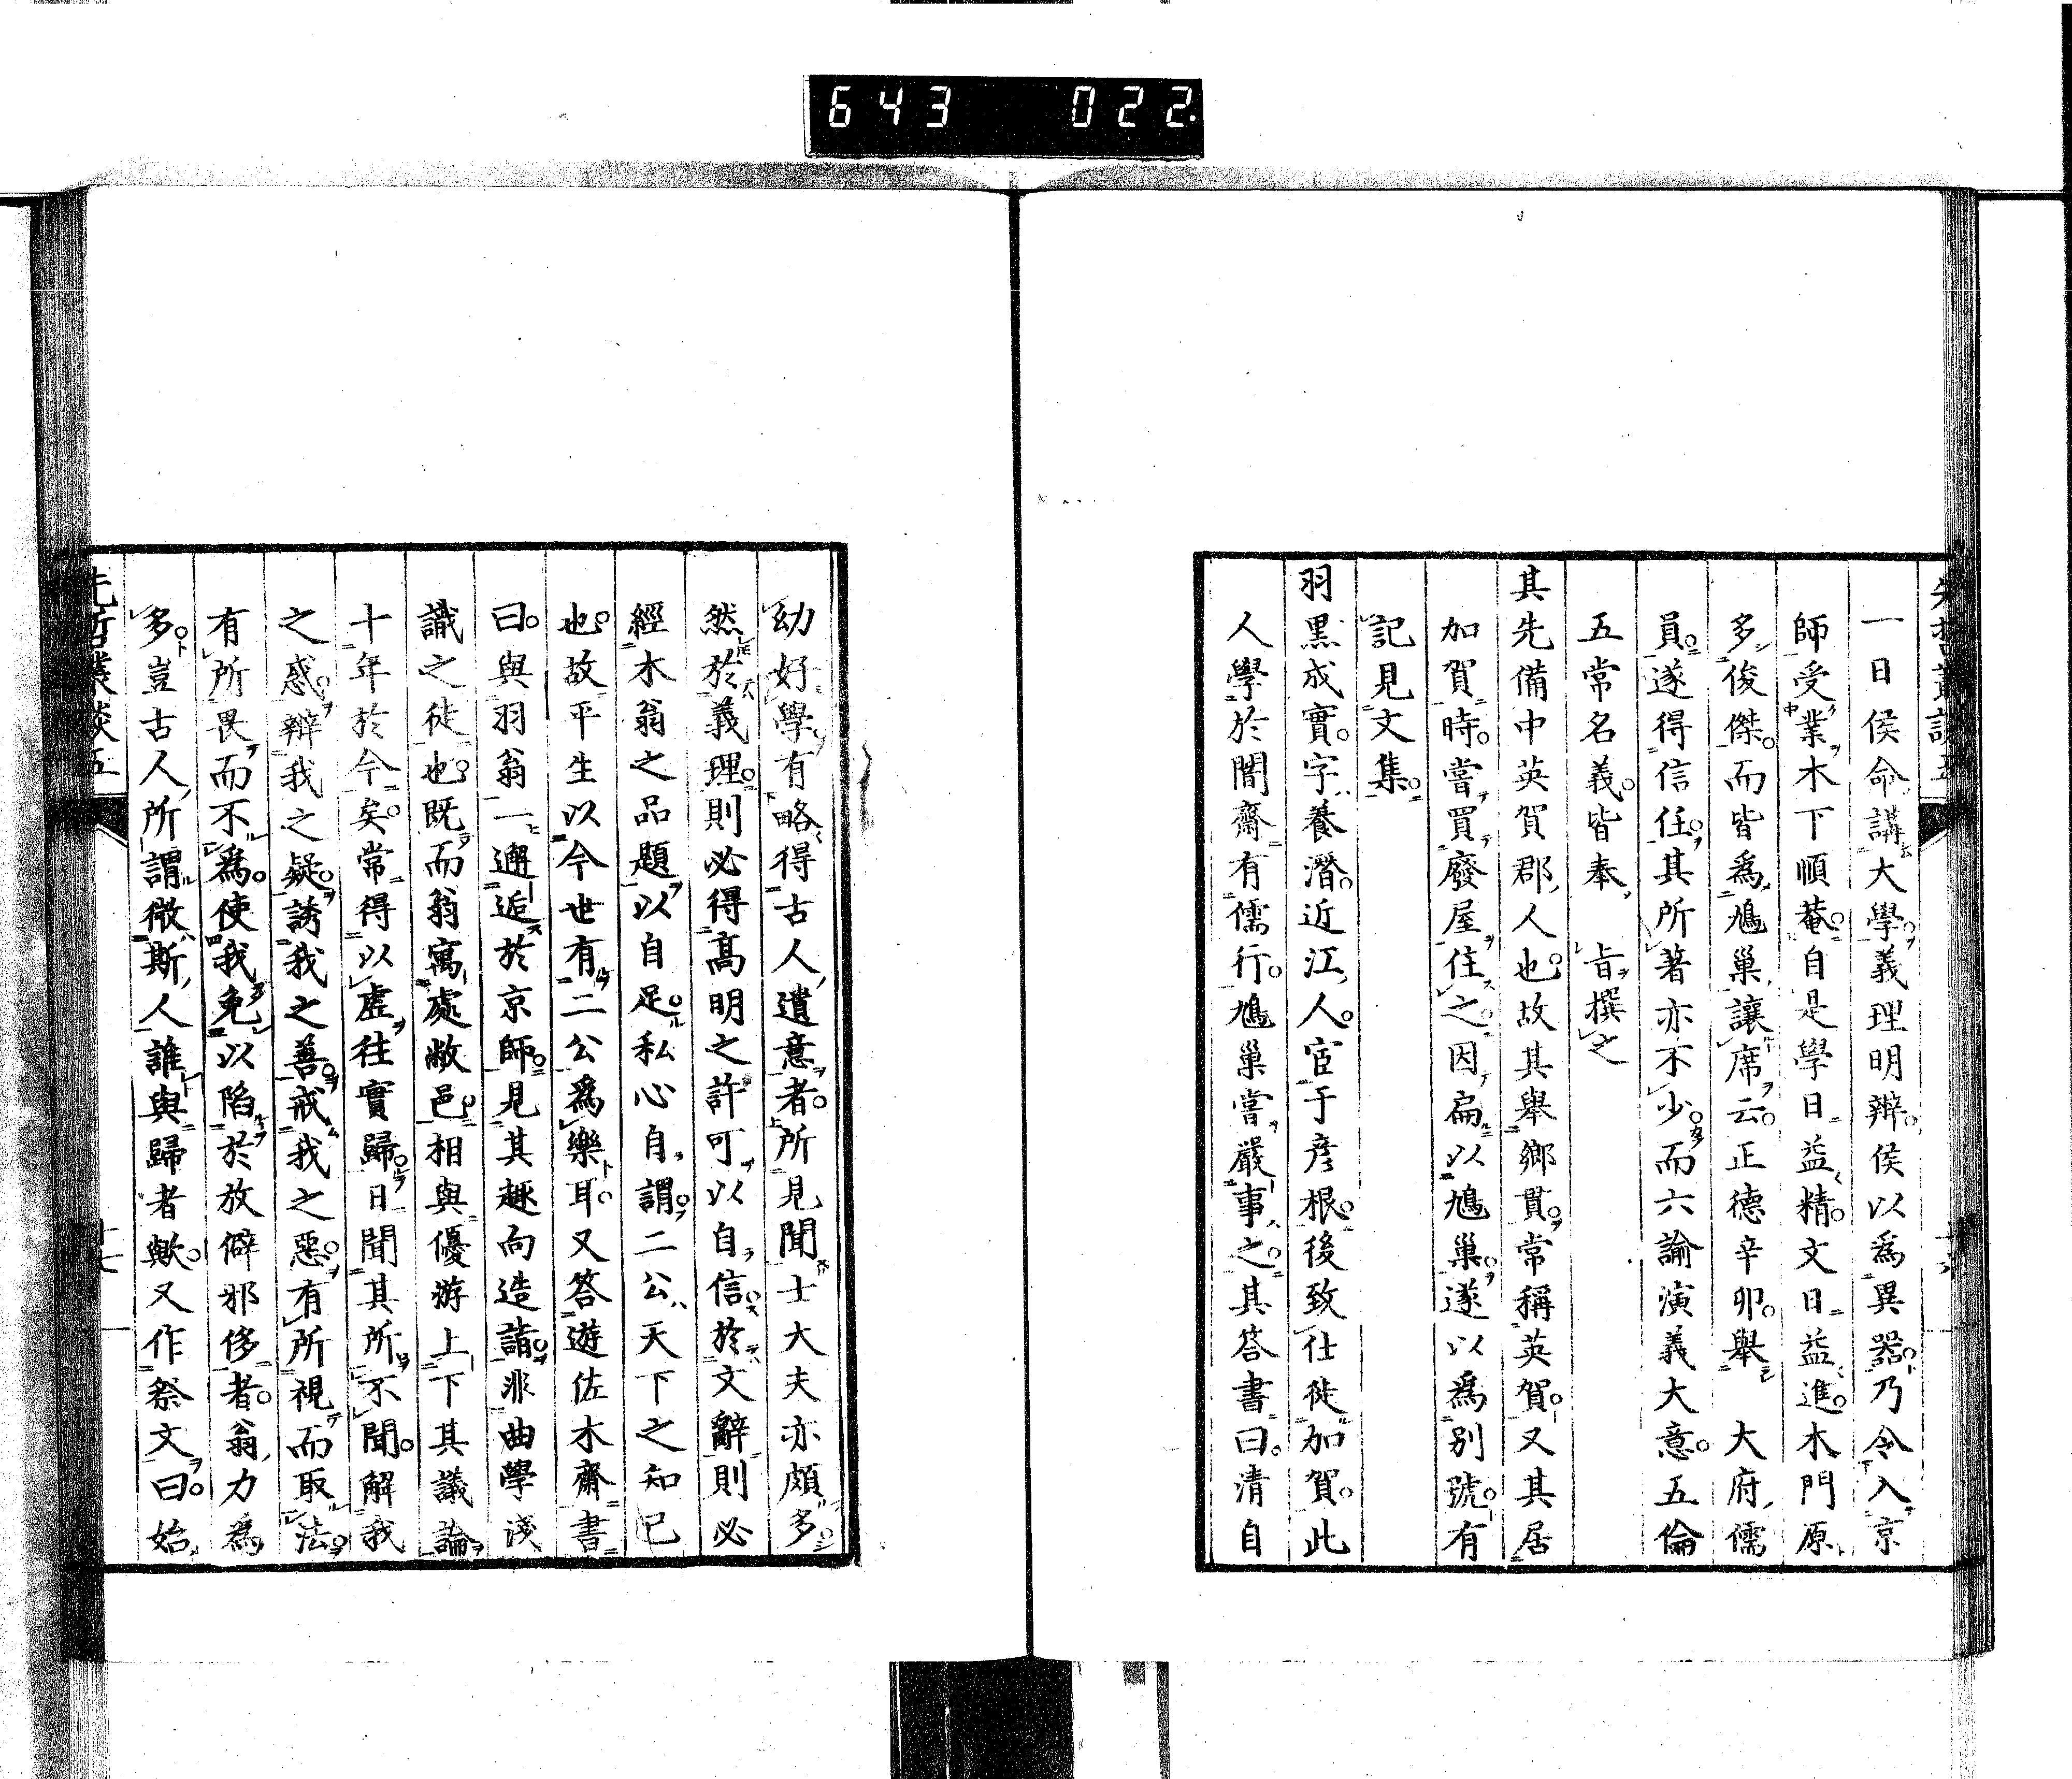 643 022
先哲叢談五
一日侯命講大學義理明辨侯以爲異器乃令入京
師受業木下順菴自是學日益精文日益進木門原
多俊傑而皆爲鳩巢讓席云正德辛卯舉 大府儒
員遂得信任其所著亦不少而六諭演義大意五倫
五常名義皆奉 旨撰之
其先備中英賀郡人也故其舉鄉貫常稱英賀又其居
加賀時嘗買廢屋住之因扁以鳩巢遂以爲別號有
記見文集
羽黒成實字養潛近江人宦于彥根後致仕徙加賀此
人學於闇齋有儒行鳩巢嘗嚴事之其答書曰清自
幼好學有略得古人遺意者所見聞士大夫亦頗多
然於義理則必得高明之許可以自信於文辭則必
經木翁之品題以自足私心自謂二公天下之知己
也故平生以今世有二公爲樂耳又答遊佐木齋書
曰與羽翁一邂逅於京師見其趣向造詣非曲學淺
識之徒也既而翁寓處敝邑相與優游上下其議論
十年於今矣常得以虛往實歸日聞其所不聞解我
之惑辯我之疑誘我之善戒我之惡有所視而取法
有所畏而不爲使我免以陷於放僻邪侈者翁力爲
多豈古人所謂微斯人誰與歸者歟又作祭文曰始
先哲叢談五
十七